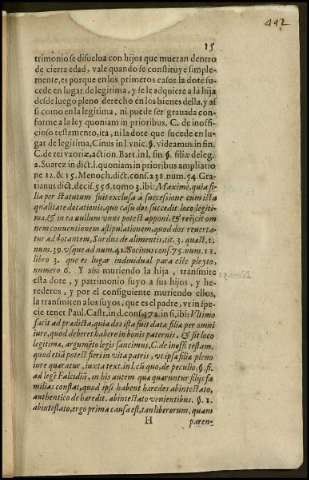 442
15
trimonio se disuelua con hijos que mueran dentro
de cierta edad, vale quando se constituye simple-
mente, es porque en los primeros casos la dote su-
cede en lugar de legitima, y se le adquiere a la hija
desde luego pleno derecho en los bienes della, y as
si como en la legitima, ni puede ser grauada con-
forme a la ley quoniam in prioribus. C. de inoffi-
cioso testamento, ita, ni la dote que sucede en lu-
gar de legitima, Cinus in l. vnic. §. videamus in fin.
C. de rei vxoriæ, action. Bart. in l. fin. §. filiæ deleg.
2. Suarez in dict. l. quoniam in prioribus ampliatio
ne 12. & 15. Menoch. dict. cons. 238. num. 54. Gra-
tianus dict. decis. 556. tomo 3. ibi: Maximè, quia fi-
lia per statutum fuit exclusa à successione cum ista
qualitate dotationis, quo casu dos succedit loco legiti-
ma, & in ea nullum vult potest apponi. & reijcit om
nem conuentionem a stipulationem, quod dos reuerta-
tur ad dotantem, Surdus de alimentis, tit. 3. quæst. 1.
num. 39. vsque ad num. 42. Socinus cons. 75. num. 12.
libro 3. que es lugar indiuidual para este pleyto,
numero 6. Y assi muriendo la hija, transmite
esta dote, y patrimonio suyo a sus hijos, y he-
rederos, y por el consiguiente muriendo ellos,
la transmiten a los suyos, que es el padre, vt in spe-
cie tenet Paul. Cast. in d. cons. 472. in fi. ibi: Vltimo
facit ad prædicta, quia dos ista fuit data filiæ per omni
iure, quod deberet habere in bonis paternis. & sit loco
legitima, argumēto legis sancimus, C. de inoffi. testam.
quod etiā potest fieri in vita patris, vt ipsa filia pleno
iure quæratur, iuxta text. in l. cū quo, de peculio, §. fi.
ad legē Falcidiā, in his autem quæ quæruntur filijs fa
milias constat, quod ipsi habent hæredes abintestato,
authentico de hæredit. abintestato venientibus. §. 1.
abintestato, ergo prima causa est, tam liberorum, quam
H
paren-